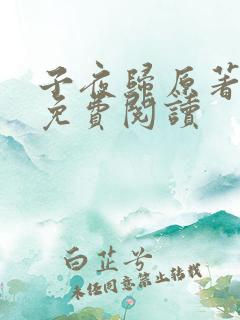 子夜歸原著
免費閱讀
白芷兮
未经同意禁止转载